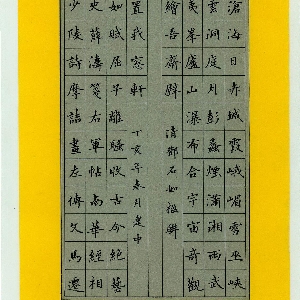 滄海日赤城霞峨嵋雪巫峽
雲洞庭月彭蠡煙瀟湘雨武
夷峯廬山瀑布合宇宙奇觀
繪吾齋壁
清鄧石如撰聯
少陵詩摩詰畫左傳文馬遷
史薛濤箋右軍帖南華經相
如賦屈子離騷收古今絕藝
置我窗軒
丁亥年春月建中